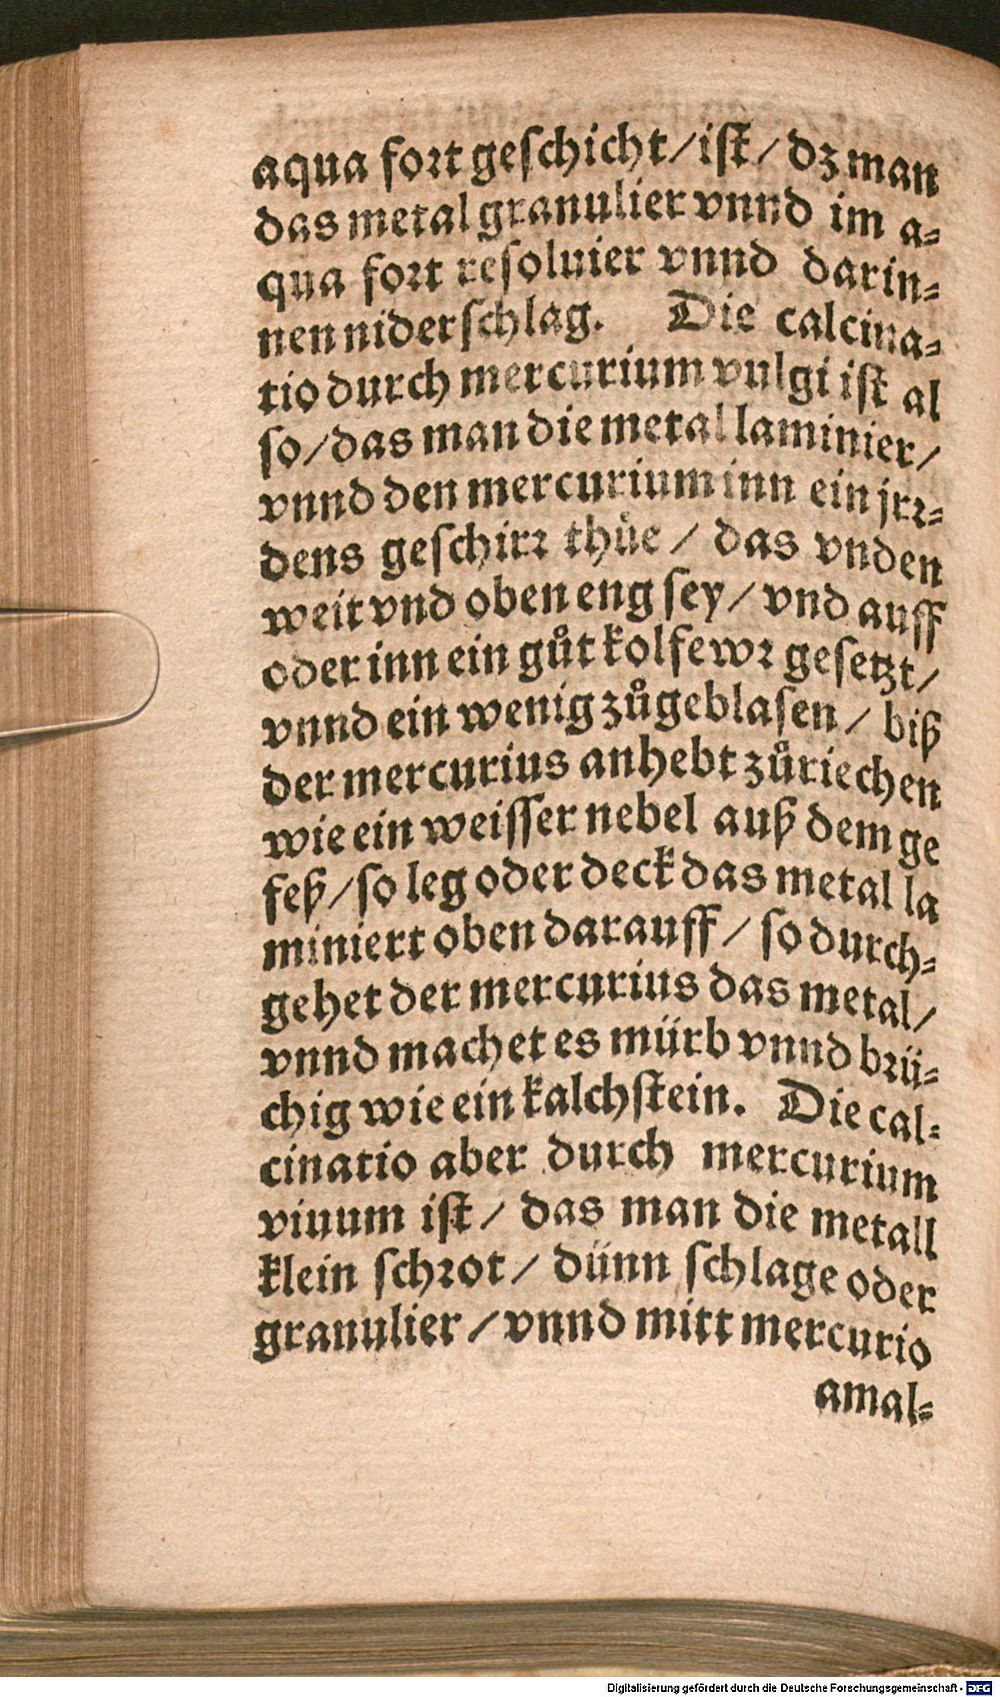 aqua fort geschicht/ist/dz man
das metal granulier vnnd im a⸗
qua fort resoluier vnnd darin⸗
nen niderschlag. Die calcina⸗
tio durch mercurium vulgi ist al
so/das man die metal laminier/
vnnd den mercurium inn ein jrr⸗
dens geschirr thüe/ das vnden
weit vnd oben eng sey/vnd auff
oder inn ein gůt kolfewr gesetzt/
vnnd ein wenig zůgeblasen/ biß
der mercurius anhebt zůriechen
wie ein weisser nebel auß dem ge
feß/so leg oder deck das metal la
miniert oben darauff/so durch⸗
gehet der mercurius das metal/
vnnd machet es mürb vnnd brü⸗
chig wie ein kalchstein. Die cal⸗
cinatio aber durch mercurium
viuum ist/ das man die metall
klein schrot/ dünn schlage oder
granulier/vnnd mitt mercurio
amal⸗
Digitalisierung gefördert durch die Deutsche Forschungsgemeinschaft - DFG